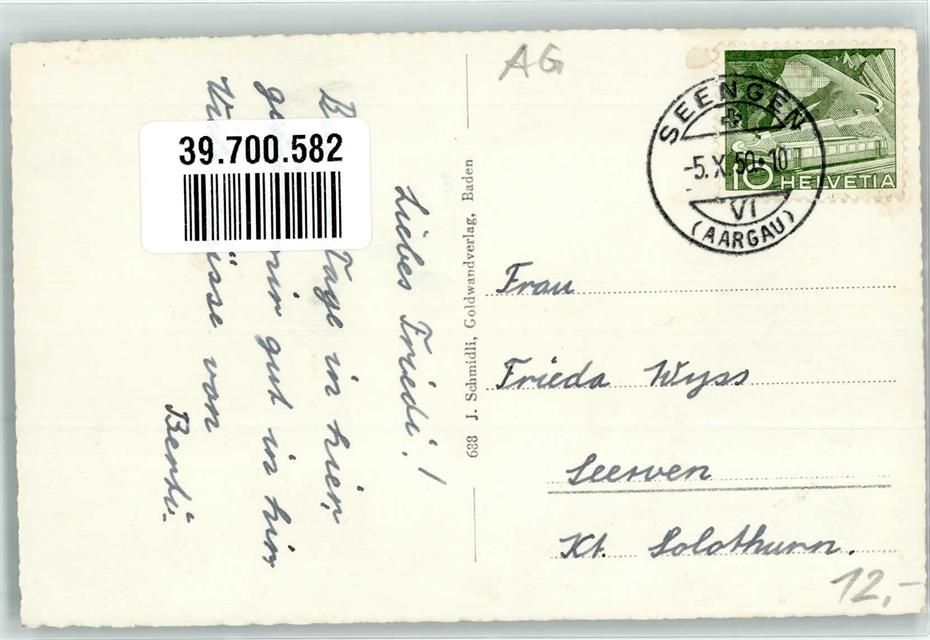 AG
SEENGEN
-5.X.50·10
VI
(AARGAU)
10 HELVETIA
39.700.582
Liebes Friedi!
Tage in hier,
gut in hier
von
Berti.
688 J. Schmidli, Goldwandverlag, Baden
Frau
Frieda Wyss
Seewen
Kt. Solothurn.
12,-